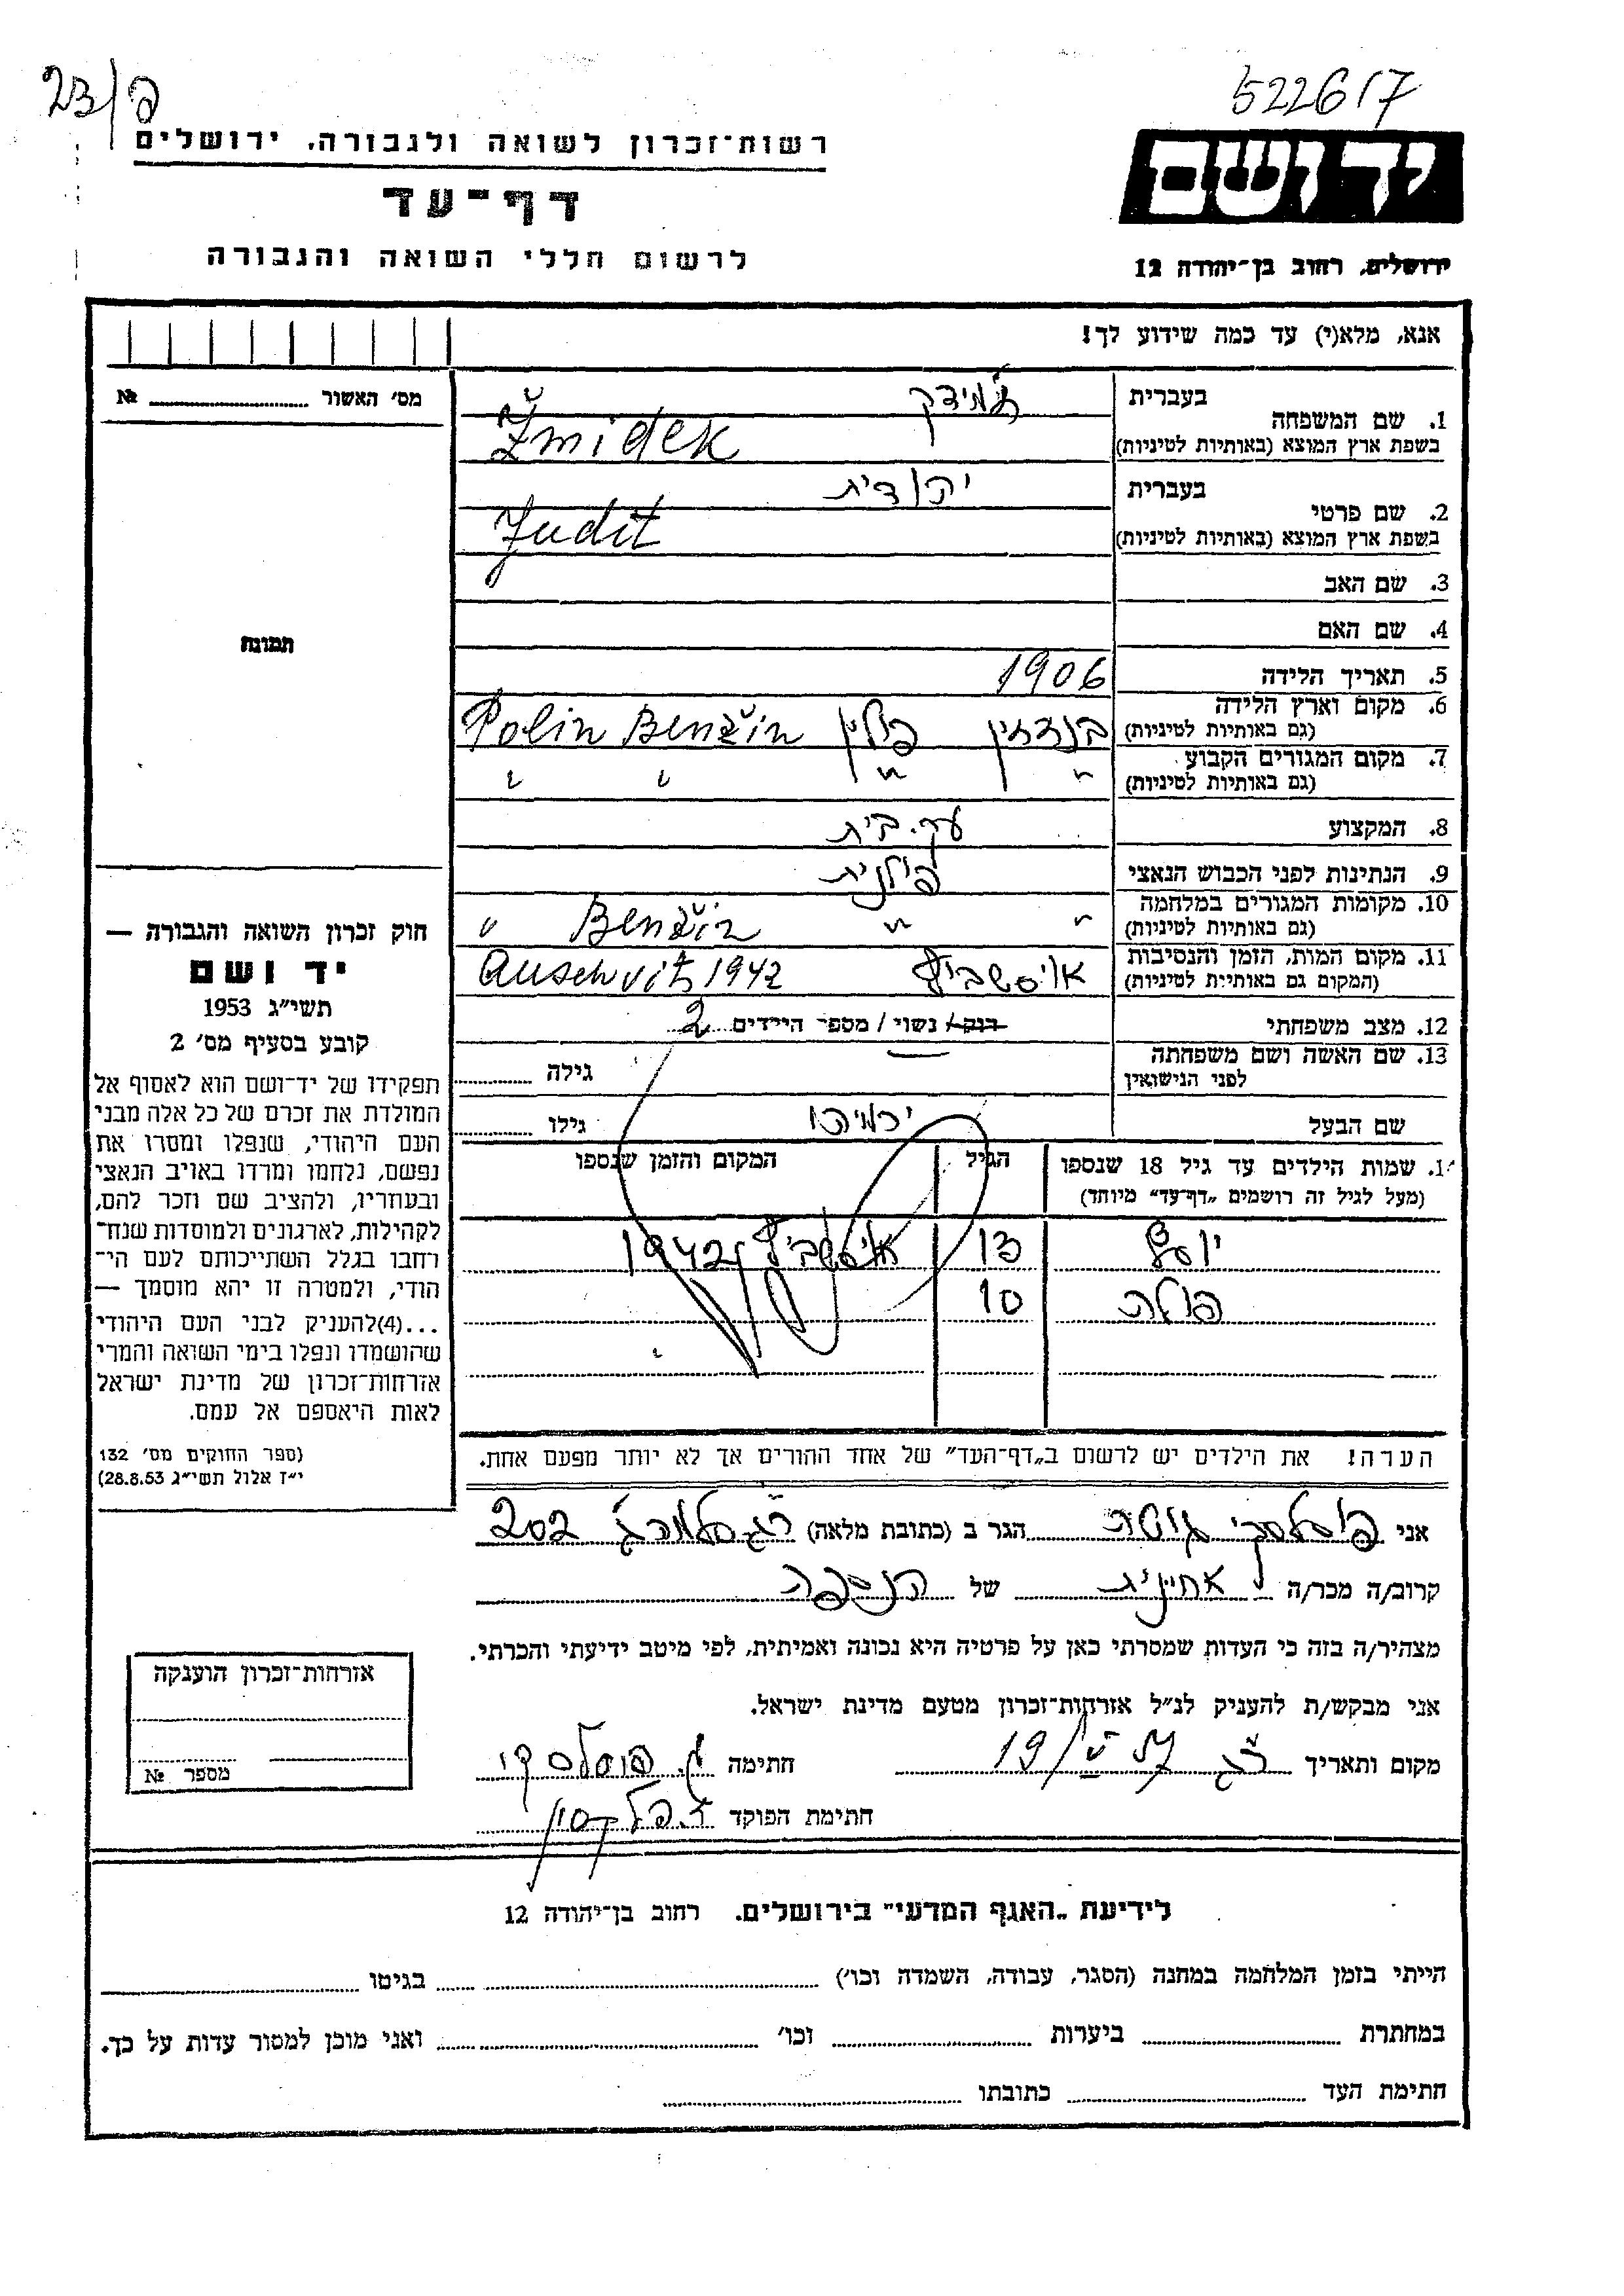 23/פ
522617
רשות־זכרון לשואה ולגבורה. ירושלים
דף־עד
לרשום חללי השואה והגבורה
יד ושם
ירושלים, רחוב בן־יהודה 12
אנא, מלא(י) עד כמה שידוע לך!
מס׳ האשור № 
תמונה
1. שם המשפחה
בעברית ז׳מידק
בשפת ארץ המוצא (באותיות לטיניות) Žmidek
2. שם פרטי
בעברית יהודית
בשפת ארץ המוצא (באותיות לטיניות) Judit
3. שם האב
4. שם האם
5. תאריך הלידה 1906
6. מקום וארץ הלידה בנדז׳ין פולין Polin Benžin
(גם באותיות לטיניות)
7. מקום המגורים הקבוע " " " "
(גם באותיות לטיניות)
8. המקצוע עק. בית
9. הנתינות לפני הכבוש הנאצי פולנית
10. מקומות המגורים במלחמה " " Benžin "
(גם באותיות לטיניות)
11. מקום המות, הזמן והנסיבות אוישביץ Auschvitz 1942
(המקום גם באותיית לטיניות)
12. מצב משפחתי רוק/ נשוי / מספר הילדים 2
13. שם האשה ושם משפחתה
לפני הנישואין
גילה
שם הבעל ירמיהו גילו
1. שמות הילדים עד גיל 18 שנספו
(מעל לגיל זה רושמים „דף־עד" מיוחד)
הגיל
המקום והזמן שנספו
יוסף 13 אוישביץ 1942
פולה 10
הערה! את הילדים יש לרשום ב„דף־העד" של אחד ההורים אך לא יותר מפעם אחת.
חוק זכרון השואה והגבורה —
יד ושם
תשי״ג 1953
קובע בסעיף מס׳ 2
תפקידו של יד־ושם הוא לאסוף אל
המולדת את זכרם של כל אלה מבני
העם היהודי, שנפלו ומסרו את
נפשם, נלחמו ומרדו באויב הנאצי
ובעוזריו, ולהציב שם וזכר להם,
לקהילות, לארגונים ולמוסדות שנח־
רחבו בגלל השתייכותם לעם הי־
הודי, ולמטרה זו יהא מוסמך —
...(4)להעניק לבני העם היהודי
שהושמדו ונפלו בימי השואה והמרי
אזרחות־זכרון של מדינת ישראל
לאות היאספם אל עמם.
(ספר החוקים מס׳ 132
י״ז אלול תשי״ג 28.8.53)
אני הגר ב (כתובת מלאה) 202
קרוב/ה מכר/ה אחיינית של הנספה
מצהיר/ה בזה כי העדות שמסרתי כאן על פרטיה היא נכונה ואמיתית, לפי מיטב ידיעתי והכרתי.
אני מבקש/ת להעניק לנ״ל אזרחות־זכרון מטעם מדינת ישראל.
מקום ותאריך ר״ג 19/V 57 חתימה
חתימת הפוקד
אזרחות־זכרון הוענקה
מספר №
לידיעת „האגף המדעי" בירושלים. רחוב בן־יהודה 12
הייתי בזמן המלחמה במחנה (הסגר, עבודה, השמדה וכו׳) בגיטו
במחתרת ביערות וכו׳ ואני מוכן למסור עדות על כך.
חתימת העד כתובתו